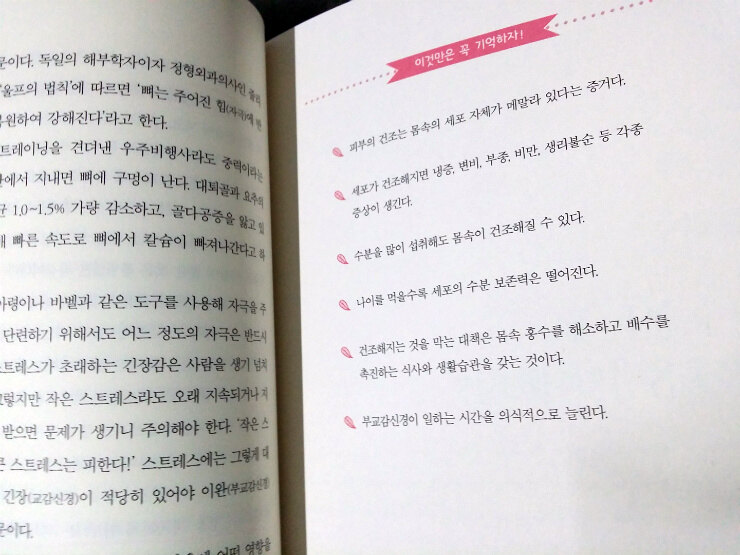 문이다. 독일의 해부학자이자 정형외과의사인 줄리
'울프의 법칙'에 따르면 '뼈는 주어진 힘(자극)에 반
복원하여 강해진다'라고 한다.
트레이닝을 견뎌낸 우주비행사라도 중력이라는
에서 지내면 뼈에 구멍이 난다. 대퇴골과 요추의
균 1.0~1.5% 가량 감소하고, 골다공증을 앓고 있
배 빠른 속도로 뼈에서 칼슘이 빠져나간다고 하
아령이나 바벨과 같은 도구를 사용해 자극을 주
단련하기 위해서도 어느 정도의 자극은 반드시
스트레스가 초래하는 긴장감은 사람을 생기 넘쳐
그렇지만 작은 스트레스라도 오래 지속되거나 자
받으면 문제가 생기니 주의해야 한다. '작은 스
큰 스트레스는 피한다!' 스트레스에는 그렇게 대
긴장(교감신경)이 적당히 있어야 이완(부교감신경)
문이다.
어떤 영향을
이것만은 꼭 기억하자!
피부의 건조는 몸속의 세포 자체가 메말라 있다는 증거다.
세포가 건조해지면 냉증, 변비, 부종, 비만, 생리불순 등 각종
증상이 생긴다.
수분을 많이 섭취해도 몸속이 건조해질 수 있다.
나이를 먹을수록 세포의 수분 보존력은 떨어진다.
건조해지는 것을 막는 대책은 몸속 홍수를 해소하고 배수를
촉진하는 식사와 생활습관을 갖는 것이다.
부교감신경이 일하는 시간을 의식적으로 늘린다.